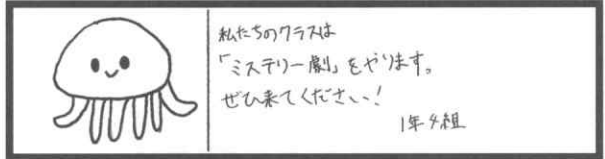 私たちのクラスは
「ミステリー劇」をやります。
ぜひ来てください!
1年4組